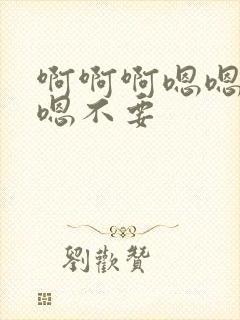 啊啊啊嗯嗯
嗯不要
劉歡贊